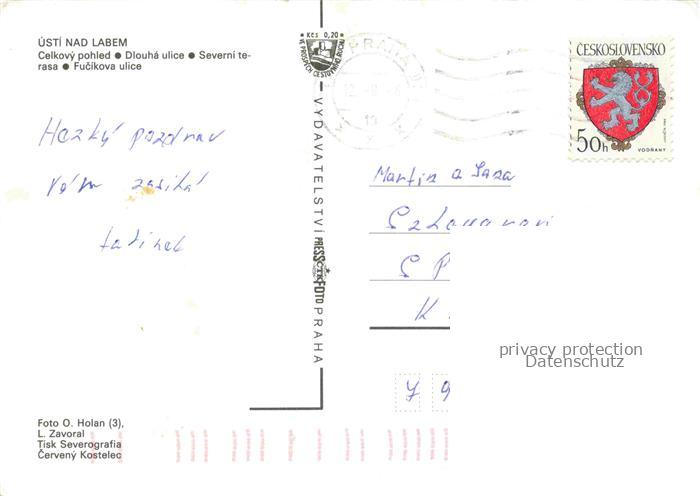 ÚSTÍ NAD LABEM
Celkový pohled ● Dlouhá ulice ● Severní te-
rasa ● Fučíkova ulice
Hezký pozdrav
Vám zasílá
Kčs 0,20
VE PROSPĚCH CESTOVNÍHO RUCHU
PRAHA
VYDAVATELSTVÍ PRESSFOTO PRAHA
ČTK
ČESKOSLOVENSKO
50h
VODŇANY
Martin a
privacy protection
Datenschutz
Foto O. Holan (3),
L. Zavoral
Tisk Severografia
Červený Kostelec